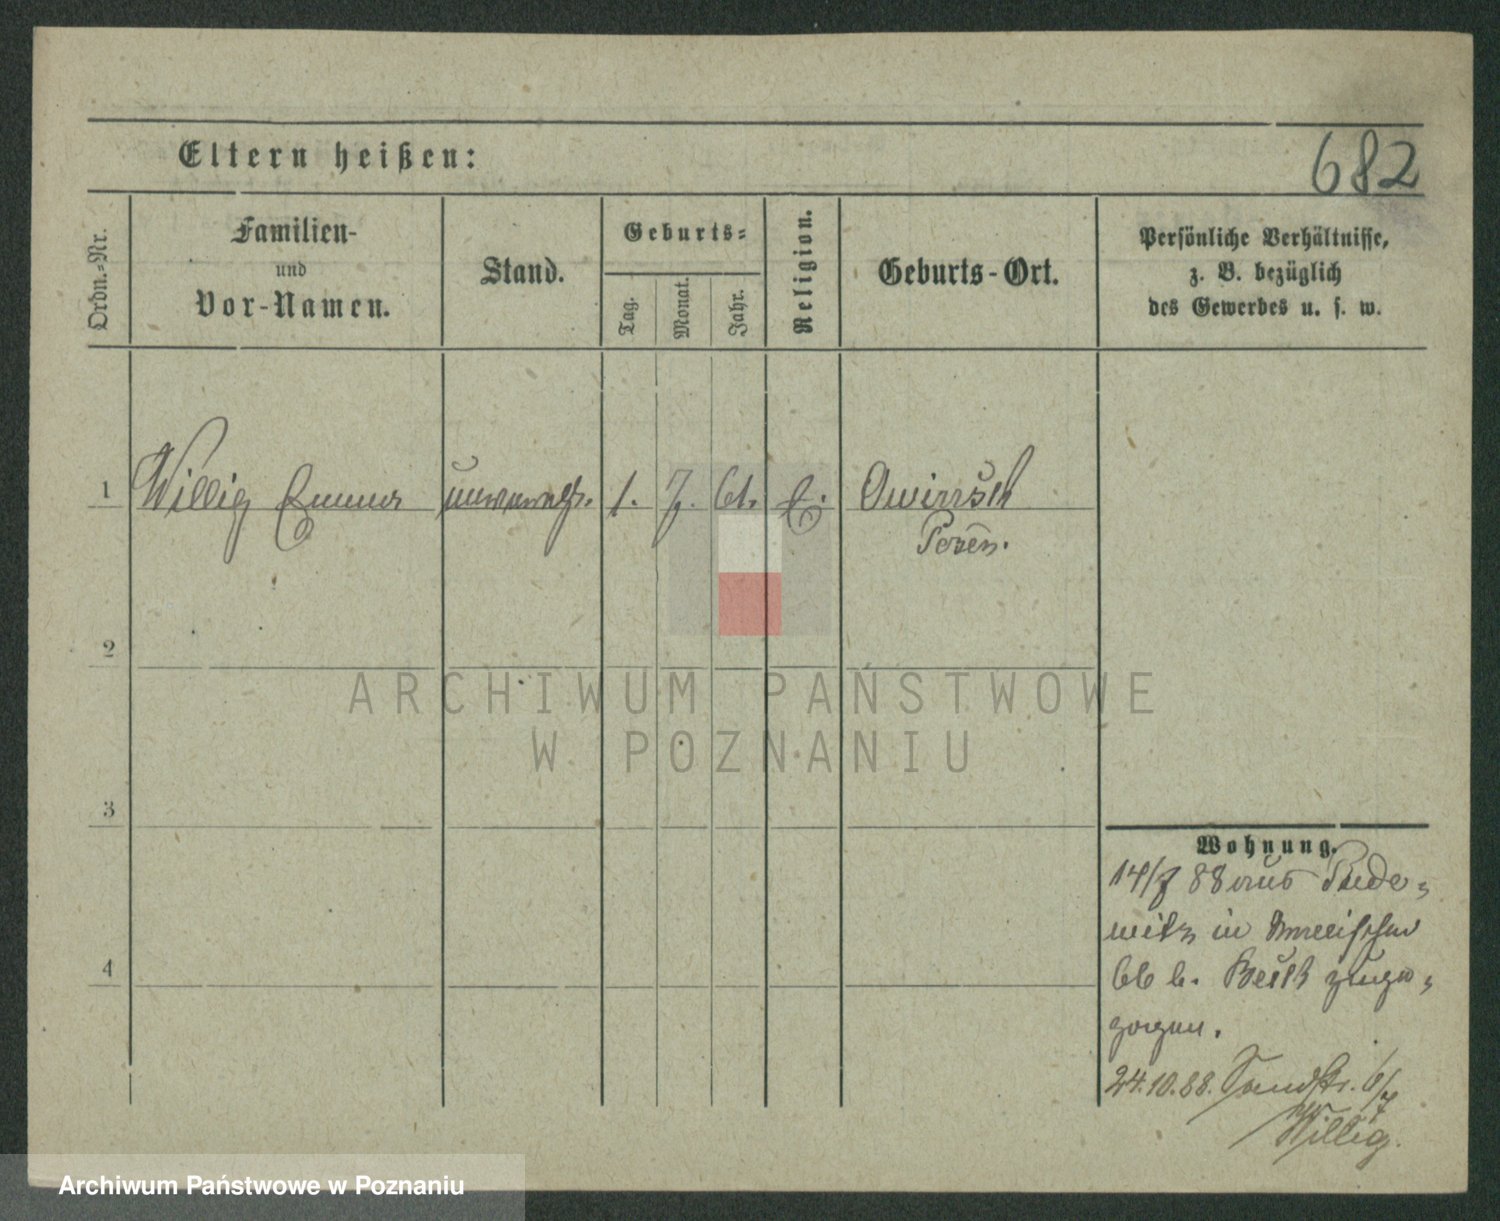 682
Eltern heißen:
Ordn.-Nr.
Familien-
und
Vor-Namen.
Stand.
Geburts-
Tag.
Monat.
Jahr.
Religion.
Geburts-Ort.
Persönliche Verhältnisse,
z. B. bezüglich
des Gewerbes u. s. w.
1 Willig Emma 1. 7. 61.
Posen.
2
3
4
ARCHIWUM PAŃSTWOWE
W POZNANIU
Wohnung.
14/7 88 aus Pude-
witz in
66 b. zuge-
zogen.
24.10.88. Sandstr. 6/7
Willig.
Archiwum Państwowe w Poznaniu